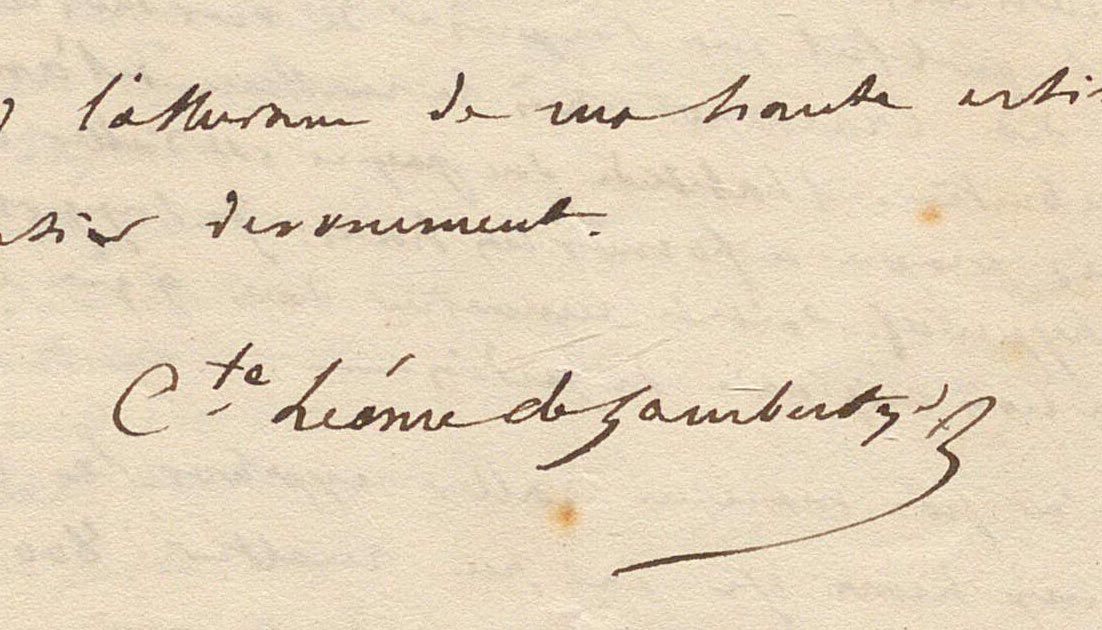 l'assurance de ma haute esti
entier dévouement.
Cte Léonce de Lambertye